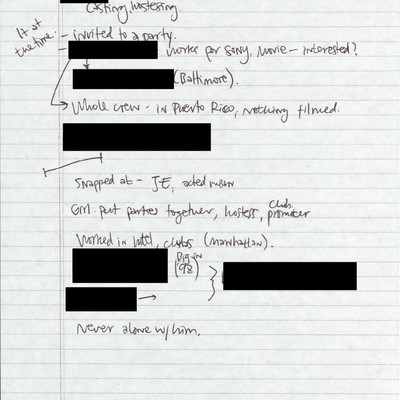 Casting, hostessing.
at the time
- invited to a party.
- works for Sony, movie - interested?
(Baltimore).
Whole crew - in Puerto Rico, nothing filmed.
Snapped at - JE, acted mean
Girl put parties together, hostess, club promoter
Worked in hotel, clubs (Manhattan).
('98)
Never alone w/ him.